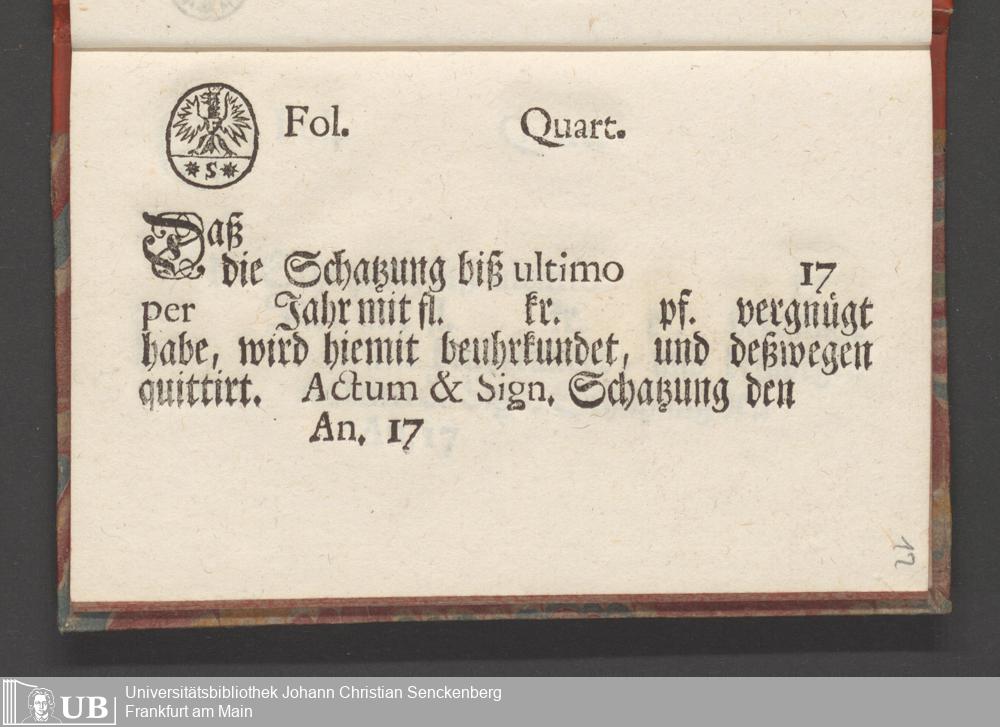 * S *
Fol. Quart.
Daß
die Schatzung biß ultimo 17
per Jahr mit fl. kr. pf. vergnügt
habe, wird hiemit beuhrkundet, und deßwegen
quittirt. Actum & Sign. Schatzung den
An. 17
12
UB
Universitätsbibliothek Johann Christian Senckenberg
Frankfurt am Main